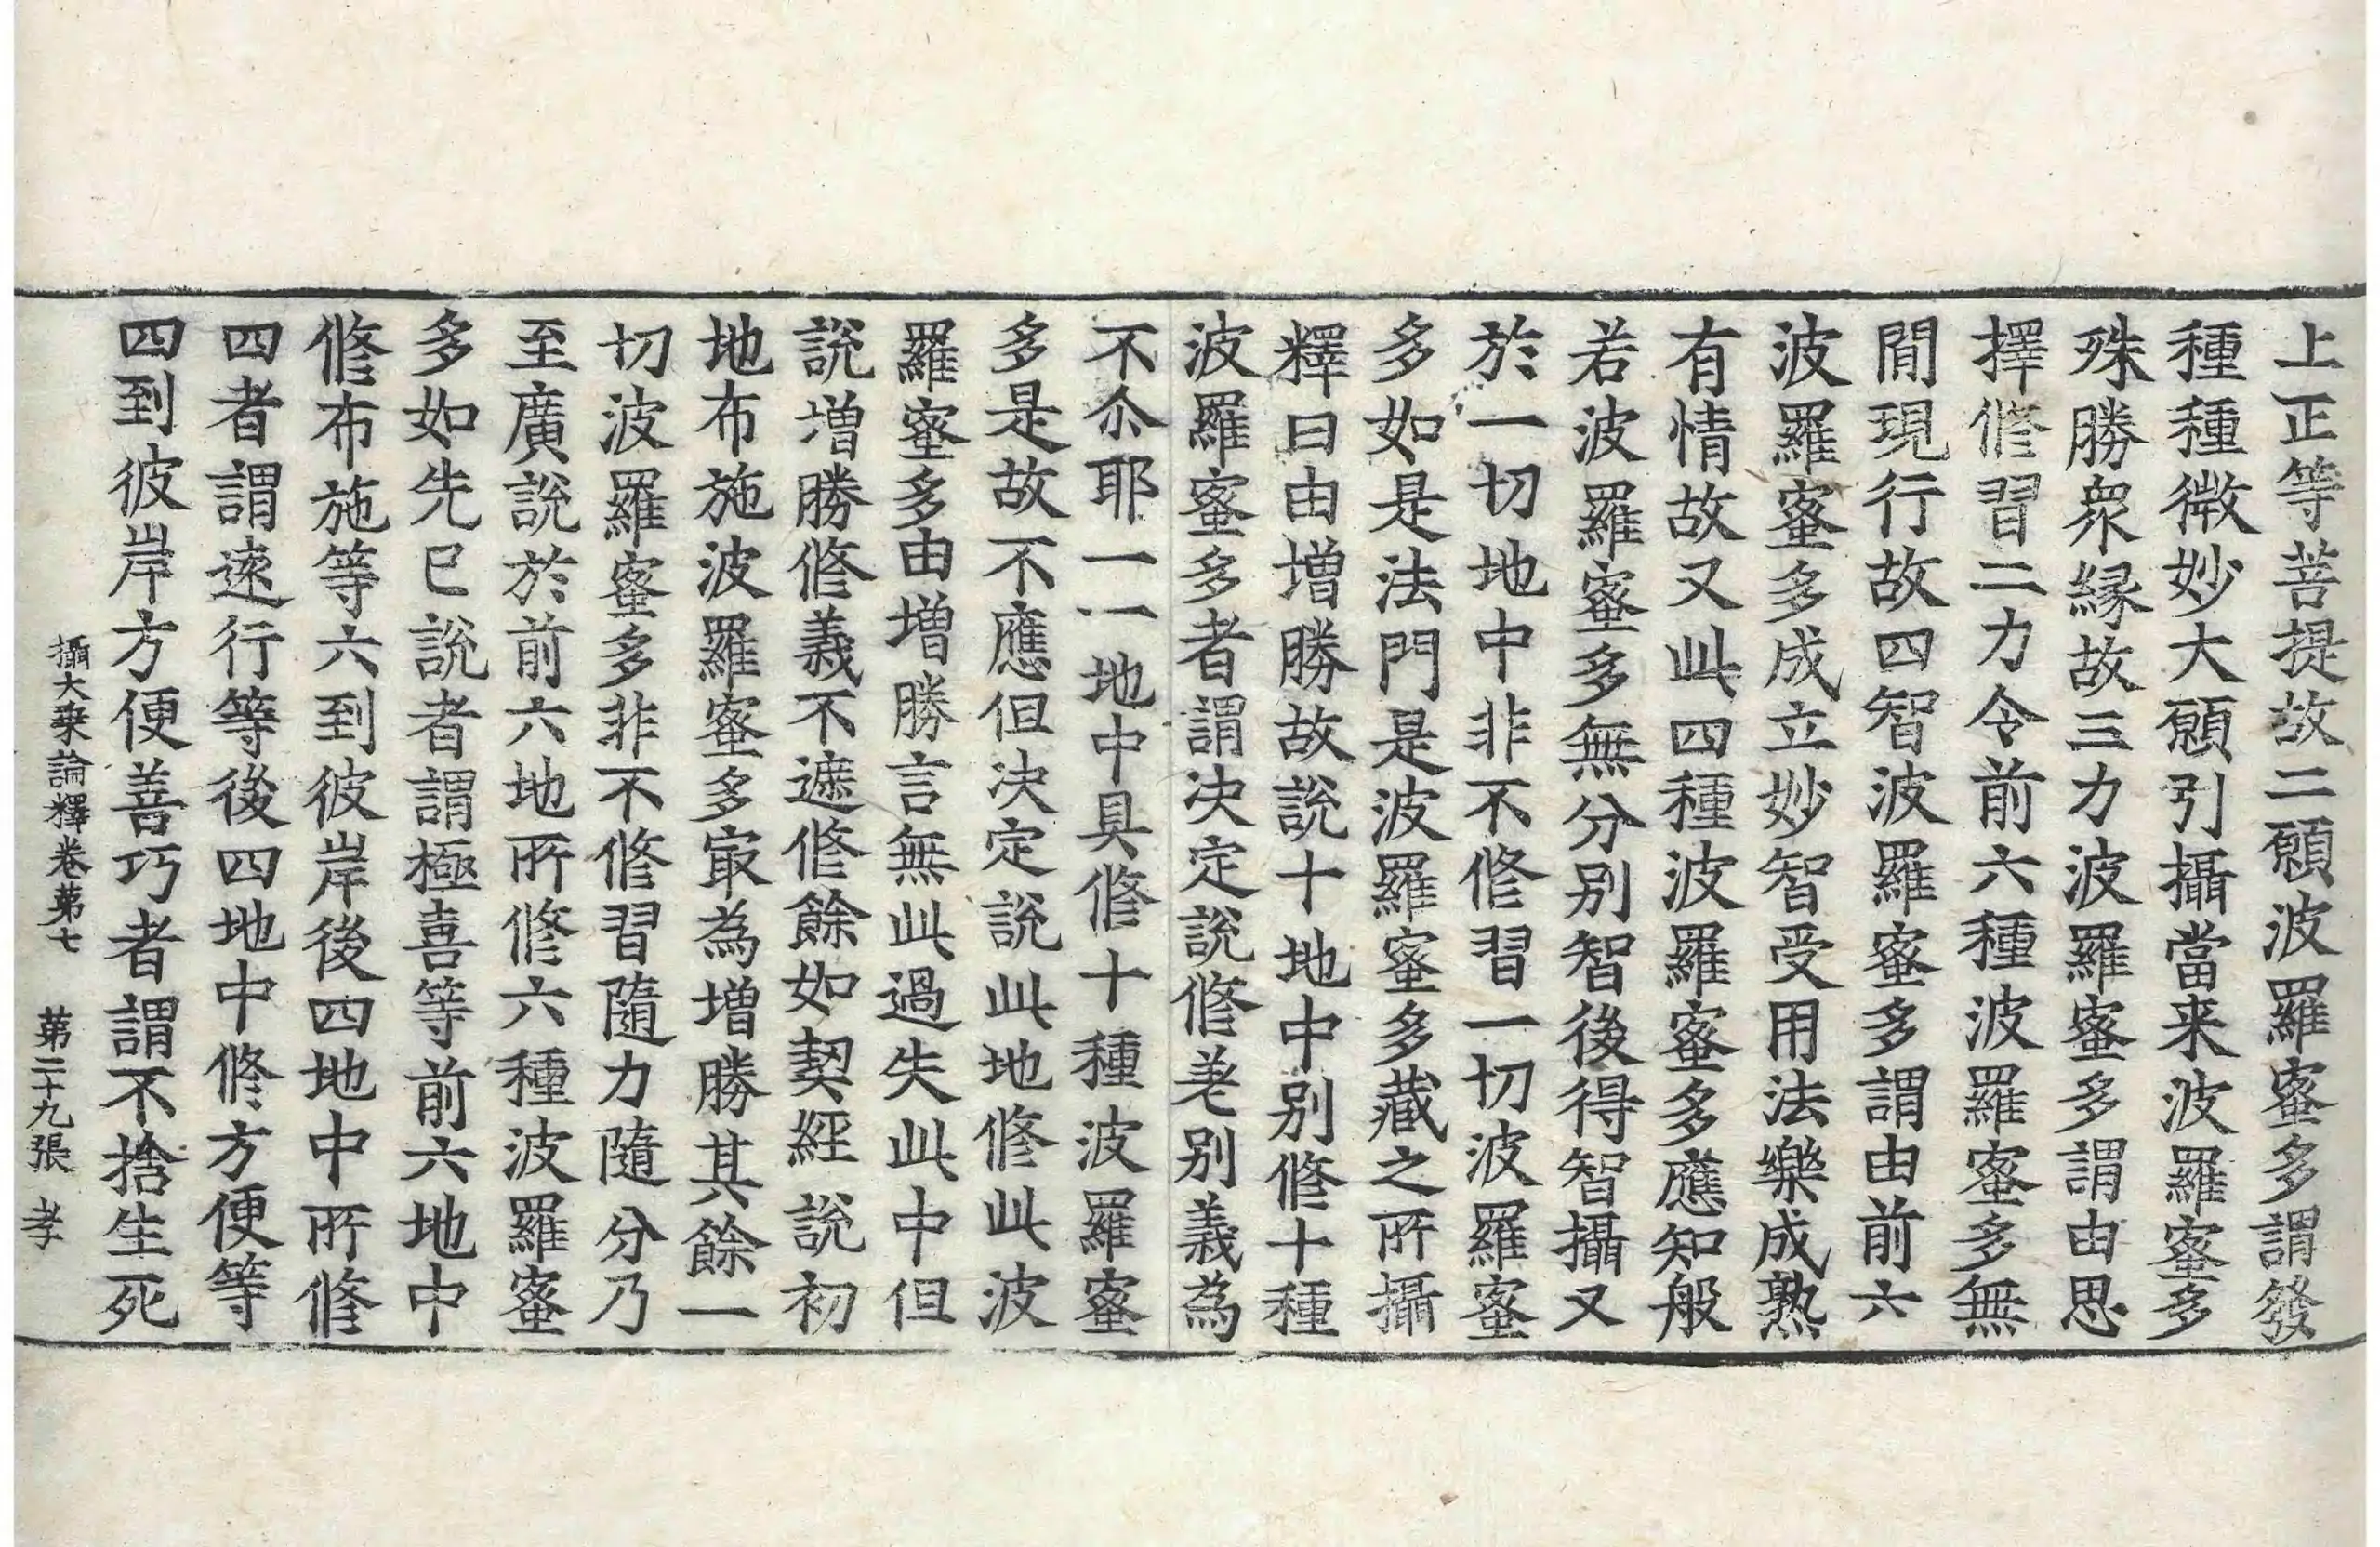 上正等菩提故二願波羅蜜多謂發
種種微妙大願引攝當来波羅蜜多
殊勝衆緣故三力波羅蜜多謂由思
擇修習二力令前六種波羅蜜多無
閒現行故四智波羅蜜多謂由前六
波羅蜜多成立妙智受用法樂成熟
有情故又此四種波羅蜜多應知般
若波羅蜜多無分别智後得智攝又
於一切地中非不修習一切波羅蜜
多如是法門是波羅蜜多藏之所攝
釋曰由增勝故說十地中别修十種
波羅蜜多者謂决定說修差别義為
不尒耶一一地中具修十種波羅蜜
多是故不應但决定說此地修此波
羅蜜多由增勝言無此過失此中但
說增勝修義不遮修餘如契經說初
地布施波羅蜜多㝡為增勝其餘一
切波羅蜜多非不修習隨力隨分乃
至廣說於前六地所修六種波羅蜜
多如先已說者謂極喜等前六地中
修布施等六到彼岸後四地中所修
四者謂遠行等後四地中修方便等
四到彼岸方便善巧者謂不捨生死
攝大乘論釋卷第七 第二十九張 孝